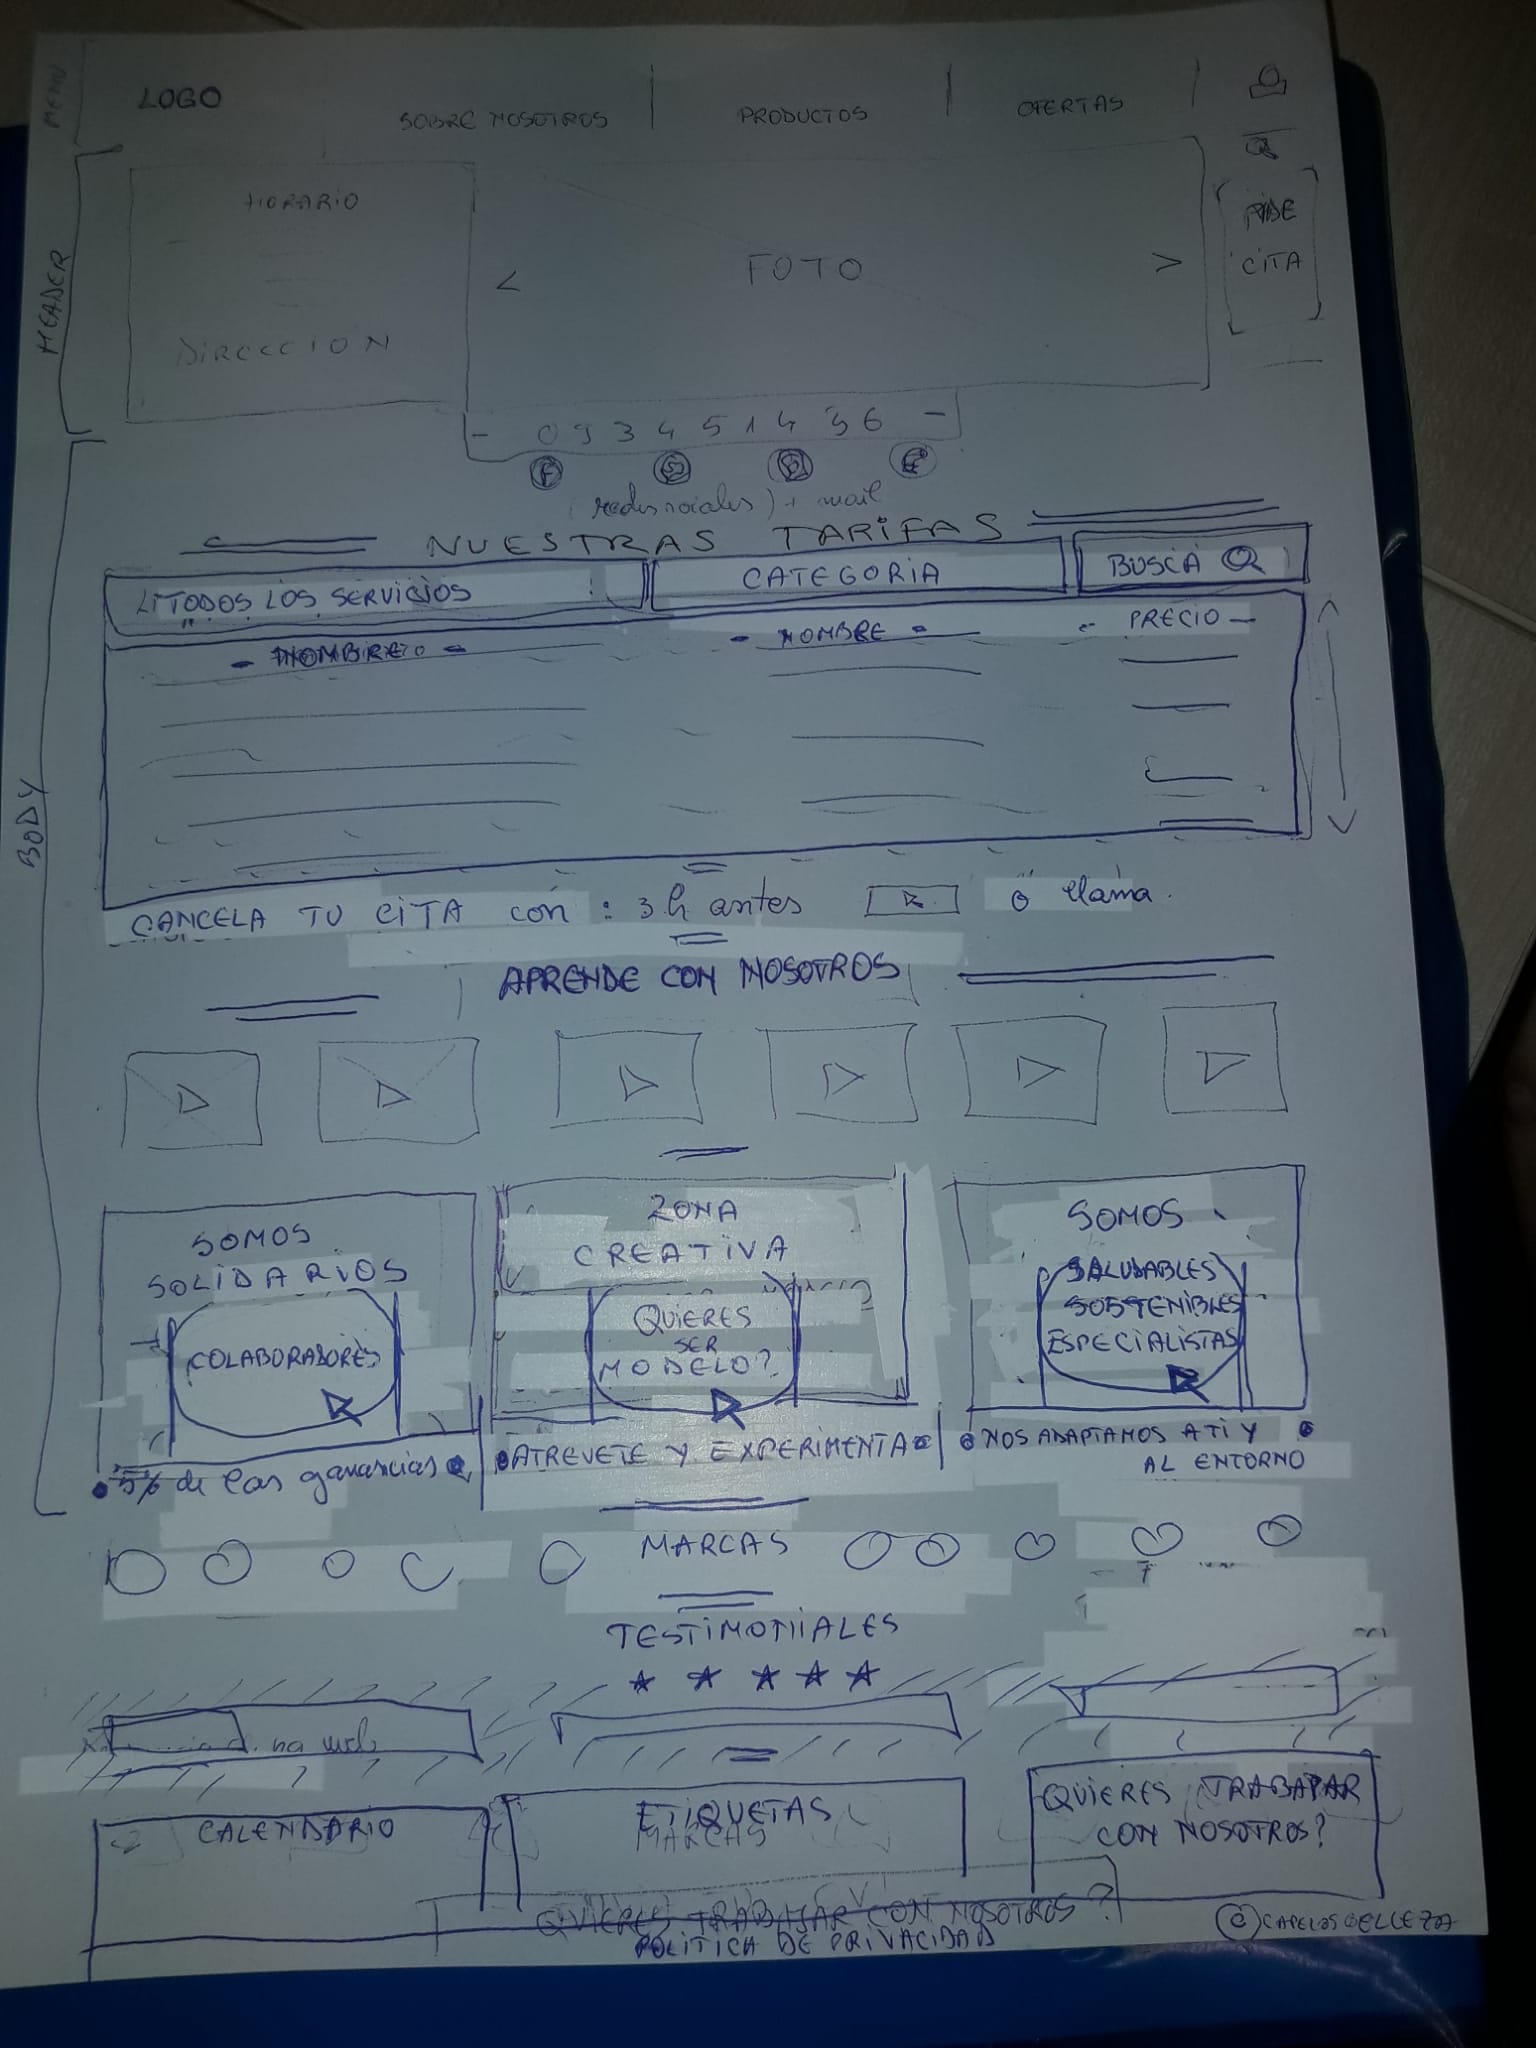 MENU
LOGO
SOBRE NOSOTROS
PRODUCTOS
OFERTAS
HEADER
HORARIO
DIRECCION
<
FOTO
>
PIDE
CITA
- 0 9 3 4 5 1 4 3 6 -
(redes sociales) + mail
BODY
NUESTRAS TARIFAS
TODOS LOS SERVICIOS
CATEGORIA
BUSCA
- NOMBRE -
- NOMBRE -
- PRECIO -
CANCELA TU CITA con : 3 h antes
o llama.
APRENDE CON NOSOTROS
SOMOS
SOLIDARIOS
COLABORADORES
5% de las ganancias
ZONA
CREATIVA
QUIERES
SER
MODELO?
ATREVETE Y EXPERIMENTA
SOMOS
SALUDABLES
SOSTENIBLES
ESPECIALISTAS
NOS ADAPTAMOS A TI Y
AL ENTORNO
MARCAS
TESTIMONIALES
CALENDARIO
ETIQUETAS
MARCAS
QUIERES TRABAJAR
CON NOSOTROS?
QUIERES TRABAJAR CON NOSOTROS?
POLÍTICA DE PRIVACIDAD